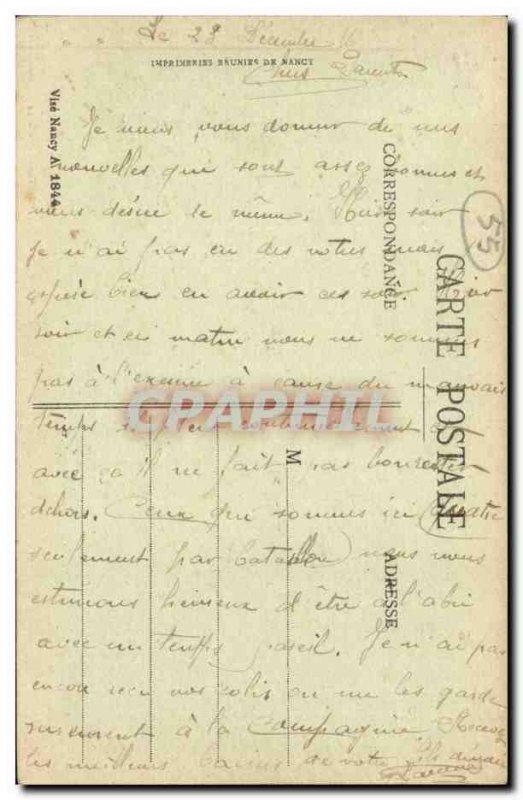 Le 28 Décembre 16
IMPRIMERIES RÉUNIES DE NANCY
Chers Parents
Je viens vous donner de mes
nouvelles que sont assez bonnes et
vous désire le même. Hier soir
je n'ai pas eu des votres mais
espère bien en avoir ces soir. Hier
soir et ce matin nous ne sommes
pas à l'exercice à cause du mauvais
temps il pleut continuellement
avec ça il ne fait pas bon rester
dehors. Ceux qui sommes ici quatre
seulement par bataillon nous nous
estimons heureux d'être a l'abri
avec un temps pareil. Je n'ai pas
encor reçu vos colis on me les garde
surement à la Compagnie. Recevez
les meilleurs baisers de votre fils dévoué
Visé Nancy A 1844
CORRESPONDANCE
CARTE POSTALE
ADRESSE
M
55
CPRAPHIL